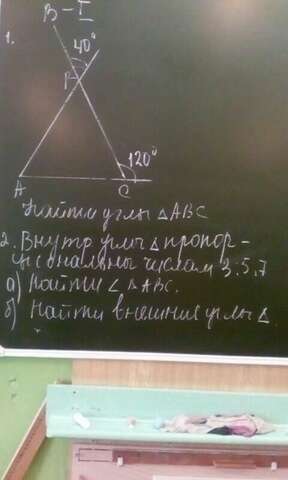 В - I
1.
40°
В
120°
А
С
Найти углы △ АВС
2. Внутр углы △ пропор-
циональны числам 3:5:7
а) Найти ∠ △ АВС.
б) Найти внешние углы △.